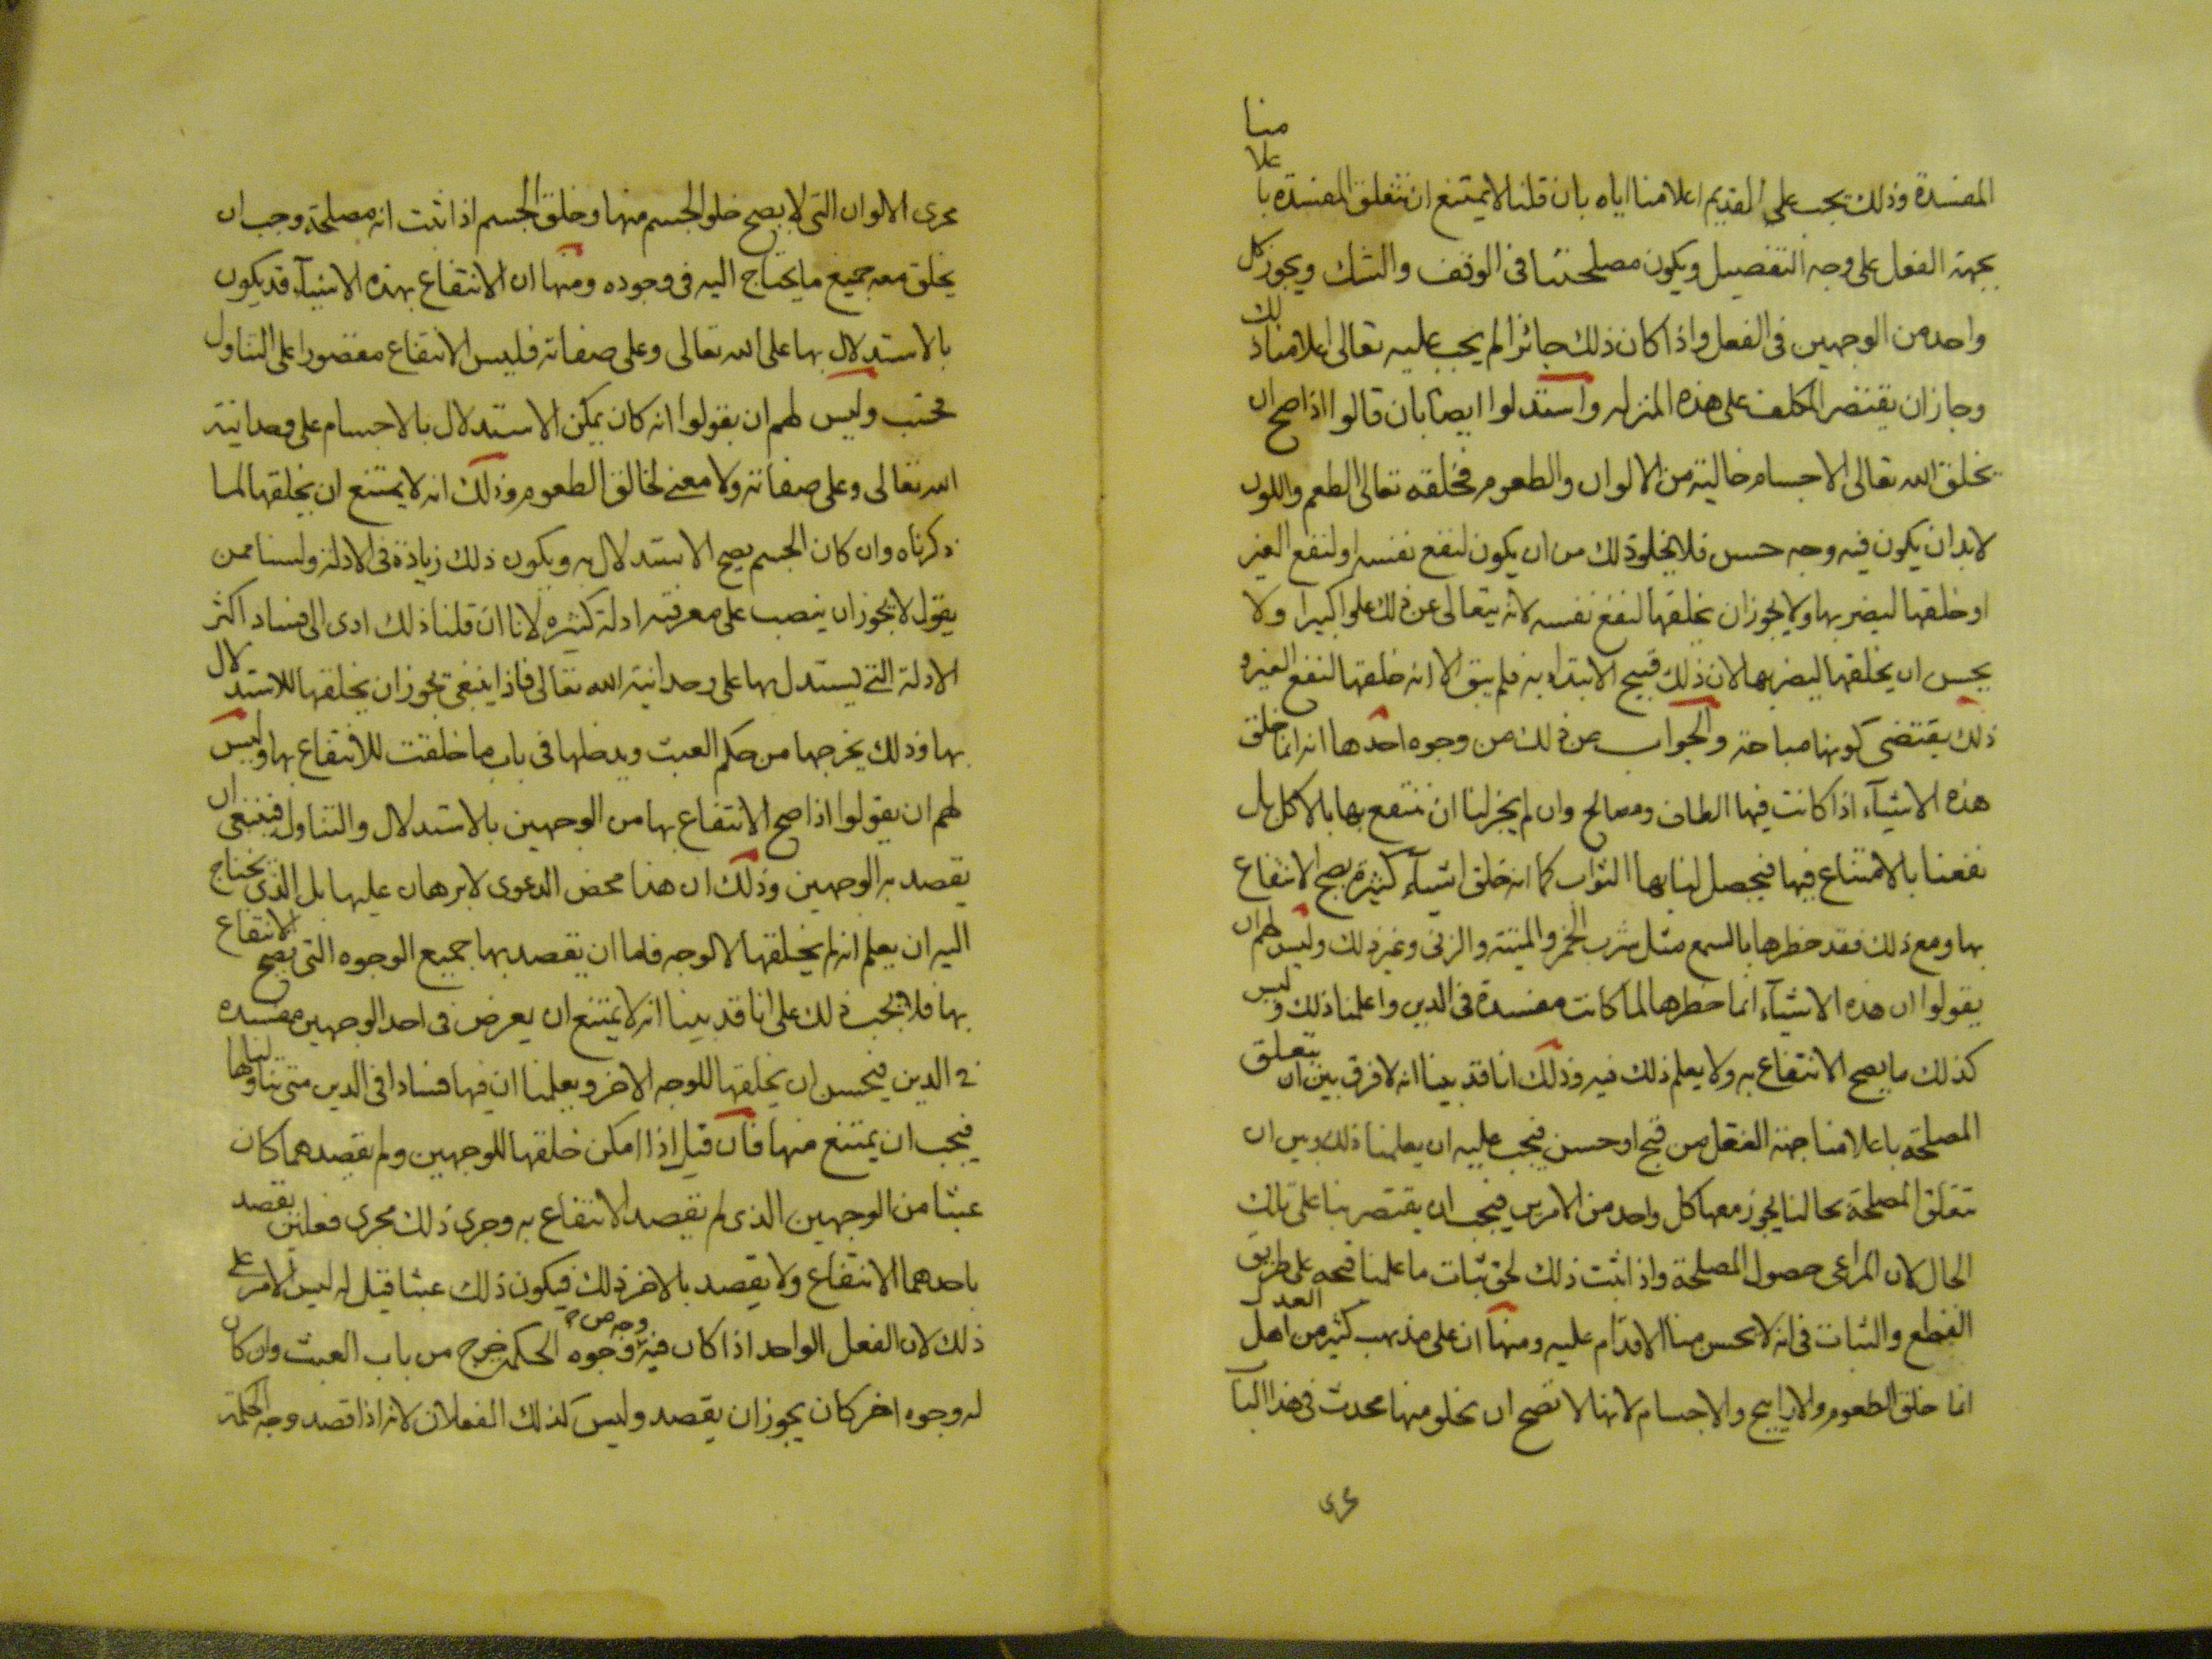 المفسدة وذلك يجب على القديم اعلامنا اياه بان قلنا لا يمتنع ان تتعلق المفسدة باعلامنا
بجهة الفعل على وجه التفصيل ويكون مصلحتنا فى الوقف والشك ويجوز كل
واحد من الوجهين فى الفعل واذا كان ذلك جائزا لم يجب عليه تعالى اعلامنا ذلك
وجاز ان يقتصر المكلف على هذه المنزله واستدلوا ايضا بان قالوا اذا صح ان
يخلق الله تعالى الاجسام خالية من الالوان والطعوم فخلقه تعالى الطعم واللون
لابد ان يكون فيه وجه حسن فلا يخلو ذلك من ان يكون لنفع نفسه او لنفع الغير
او خلقها ليضر بها ولا يجوز ان يخلقها لنفع نفسه لانه يتعالى عن ذلك علوا كبيرا ولا
يحسن ان يخلقها ليضر بها لان ذلك قبيح الابتداء به فلم يبق الا انه خلقها لنفع الغير و
ذلك يقتضى كونها مباحة والجواب عن ذلك من وجوه احدها انه انما خلق
هذه الاشيآء اذا كانت فيها الطاف ومصالح وان لم يجز لنا ان ننتفع بها بالاكل بل
نفعنا بالامتناع فيها فيحصل لنا بها الثواب كما انه خلق اشيآء كثيرة يصح الانتفاع
بها ومع ذلك فقد حظرها بالسمع مثل شرب الخمر والميتة والزنى وغير ذلك وليس لهم ان
يقولوا ان هذه الاشيآء انما حظرها لما كانت مفسدة فى الدين واعلمنا ذلك وليس
كذلك ما يصح الانتفاع به ولا يعلم ذلك فيه وذلك انا قد بينا انه لا فرق بين ان تتعلق
المصلحة باعلامنا جهة الفعل من قبح او حسن فيجب عليه ان يعلمنا ذلك وبين ان
تتعلق المصلحة بحالنا يجوز معها كل واحد من الامرين فيجب ان يقتصر بنا على تلك
الحال لان المراعى حصول المصلحة واذا ثبت ذلك لحق ثبات ما علمنا قبحه على طريق
القطع والثبات فى انه لا يحسن منا الاقدام عليه ومنها ان على مذهب كثير من اهل العدل
انما خلق الطعوم والاراييح والاجسام لانها لا تصح ان يخلو منها محدث فى هذا البا
مجرى
مجرى الالوان التى لا يصح خلو الجسم منها وخلق الجسم اذا ثبت انه مصلحة وجب ان
يخلق معه جميع ما يحتاج اليه فى وجوده ومنها ان الانتفاع بهذه الاشيآء قد يكون
بالاستدلال بها على الله تعالى وعلى صفاته فليس الانتفاع مقصورا على التناول
فحسب وليس لهم ان يقولوا انه كان يمكن الاستدلال بالاجسام على وحدانية
الله تعالى وعلى صفاته ولا معنى لخالق الطعوم وذلك انه لا يمتنع ان يخلقها لما
ذكرناه وان كان الجسم يصح الاستدلال به ويكون ذلك زيادة فى الادلة ولسنا ممن
يقول لا يجوز ان ينصب على معرفته ادلة كثيرة لانا ان قلنا ذلك ادى الى فساد اكثر
الادلة التى يستدل بها على وحدانية الله تعالى فاذا ينبغى يجوز ان يخلقها للاستدلال
بها وذلك يخرجها من حكم العبث ويدخلها فى باب ما خلقت للانتفاع بها وليس
لهم ان يقولوا اذا صح الانتفاع بها من الوجهين بالاستدلال والتناول فينبغى ان
يقصد به الوجهين وذلك ان هذا محض الدعوى لا برهان عليها بل الذى يحتاج
اليه ان يعلم انه لم يخلقها الا لوجه فاما ان يقصد بها جميع الوجوه التى يصح الانتفاع
بها فلا يجب ذلك على انا قد بينا انه لا يمتنع ان يعرض فى احد الوجهين مفسدة
فى الدين فيحسن ان يخلقها للوجه الاخر ويعلمنا ان فيها فسادا فى الدين متى تناولناها
فيجب ان يمتنع منها فان قيل اذا امكن خلقها للوجهين ولم يقصدهما كان
عبثا من الوجهين الذى لم يقصد الانتفاع به وجرى ذلك مجرى فعلين يقصد
باحدهما الانتفاع ولا يقصد بالاخر ذلك فيكون ذلك عبثا قيل له ليس الامر على
ذلك لان الفعل الواحد اذا كان فيه وجه من وجوه الحكمة خرج من باب العبث وان كان
له وجوه اخر كان يجوز ان يقصد وليس كذلك الفعلان لانه اذا قصد وجه الحكمة